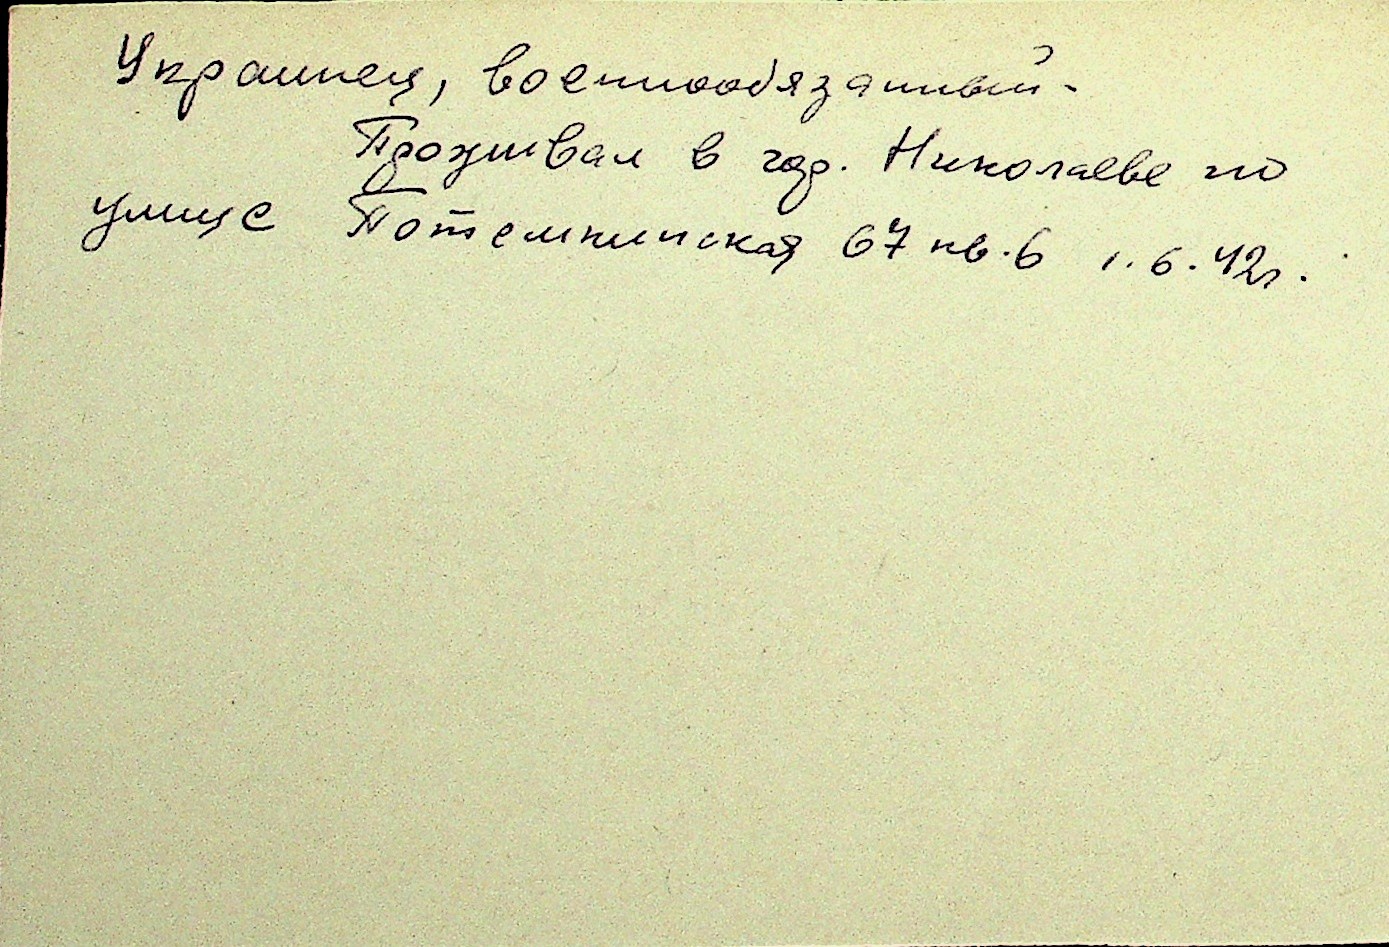 Украинец, военнообязанный.
Проживал в гор. Николаеве по
улице Потемкинская 67 кв. 6 1.6.42г.